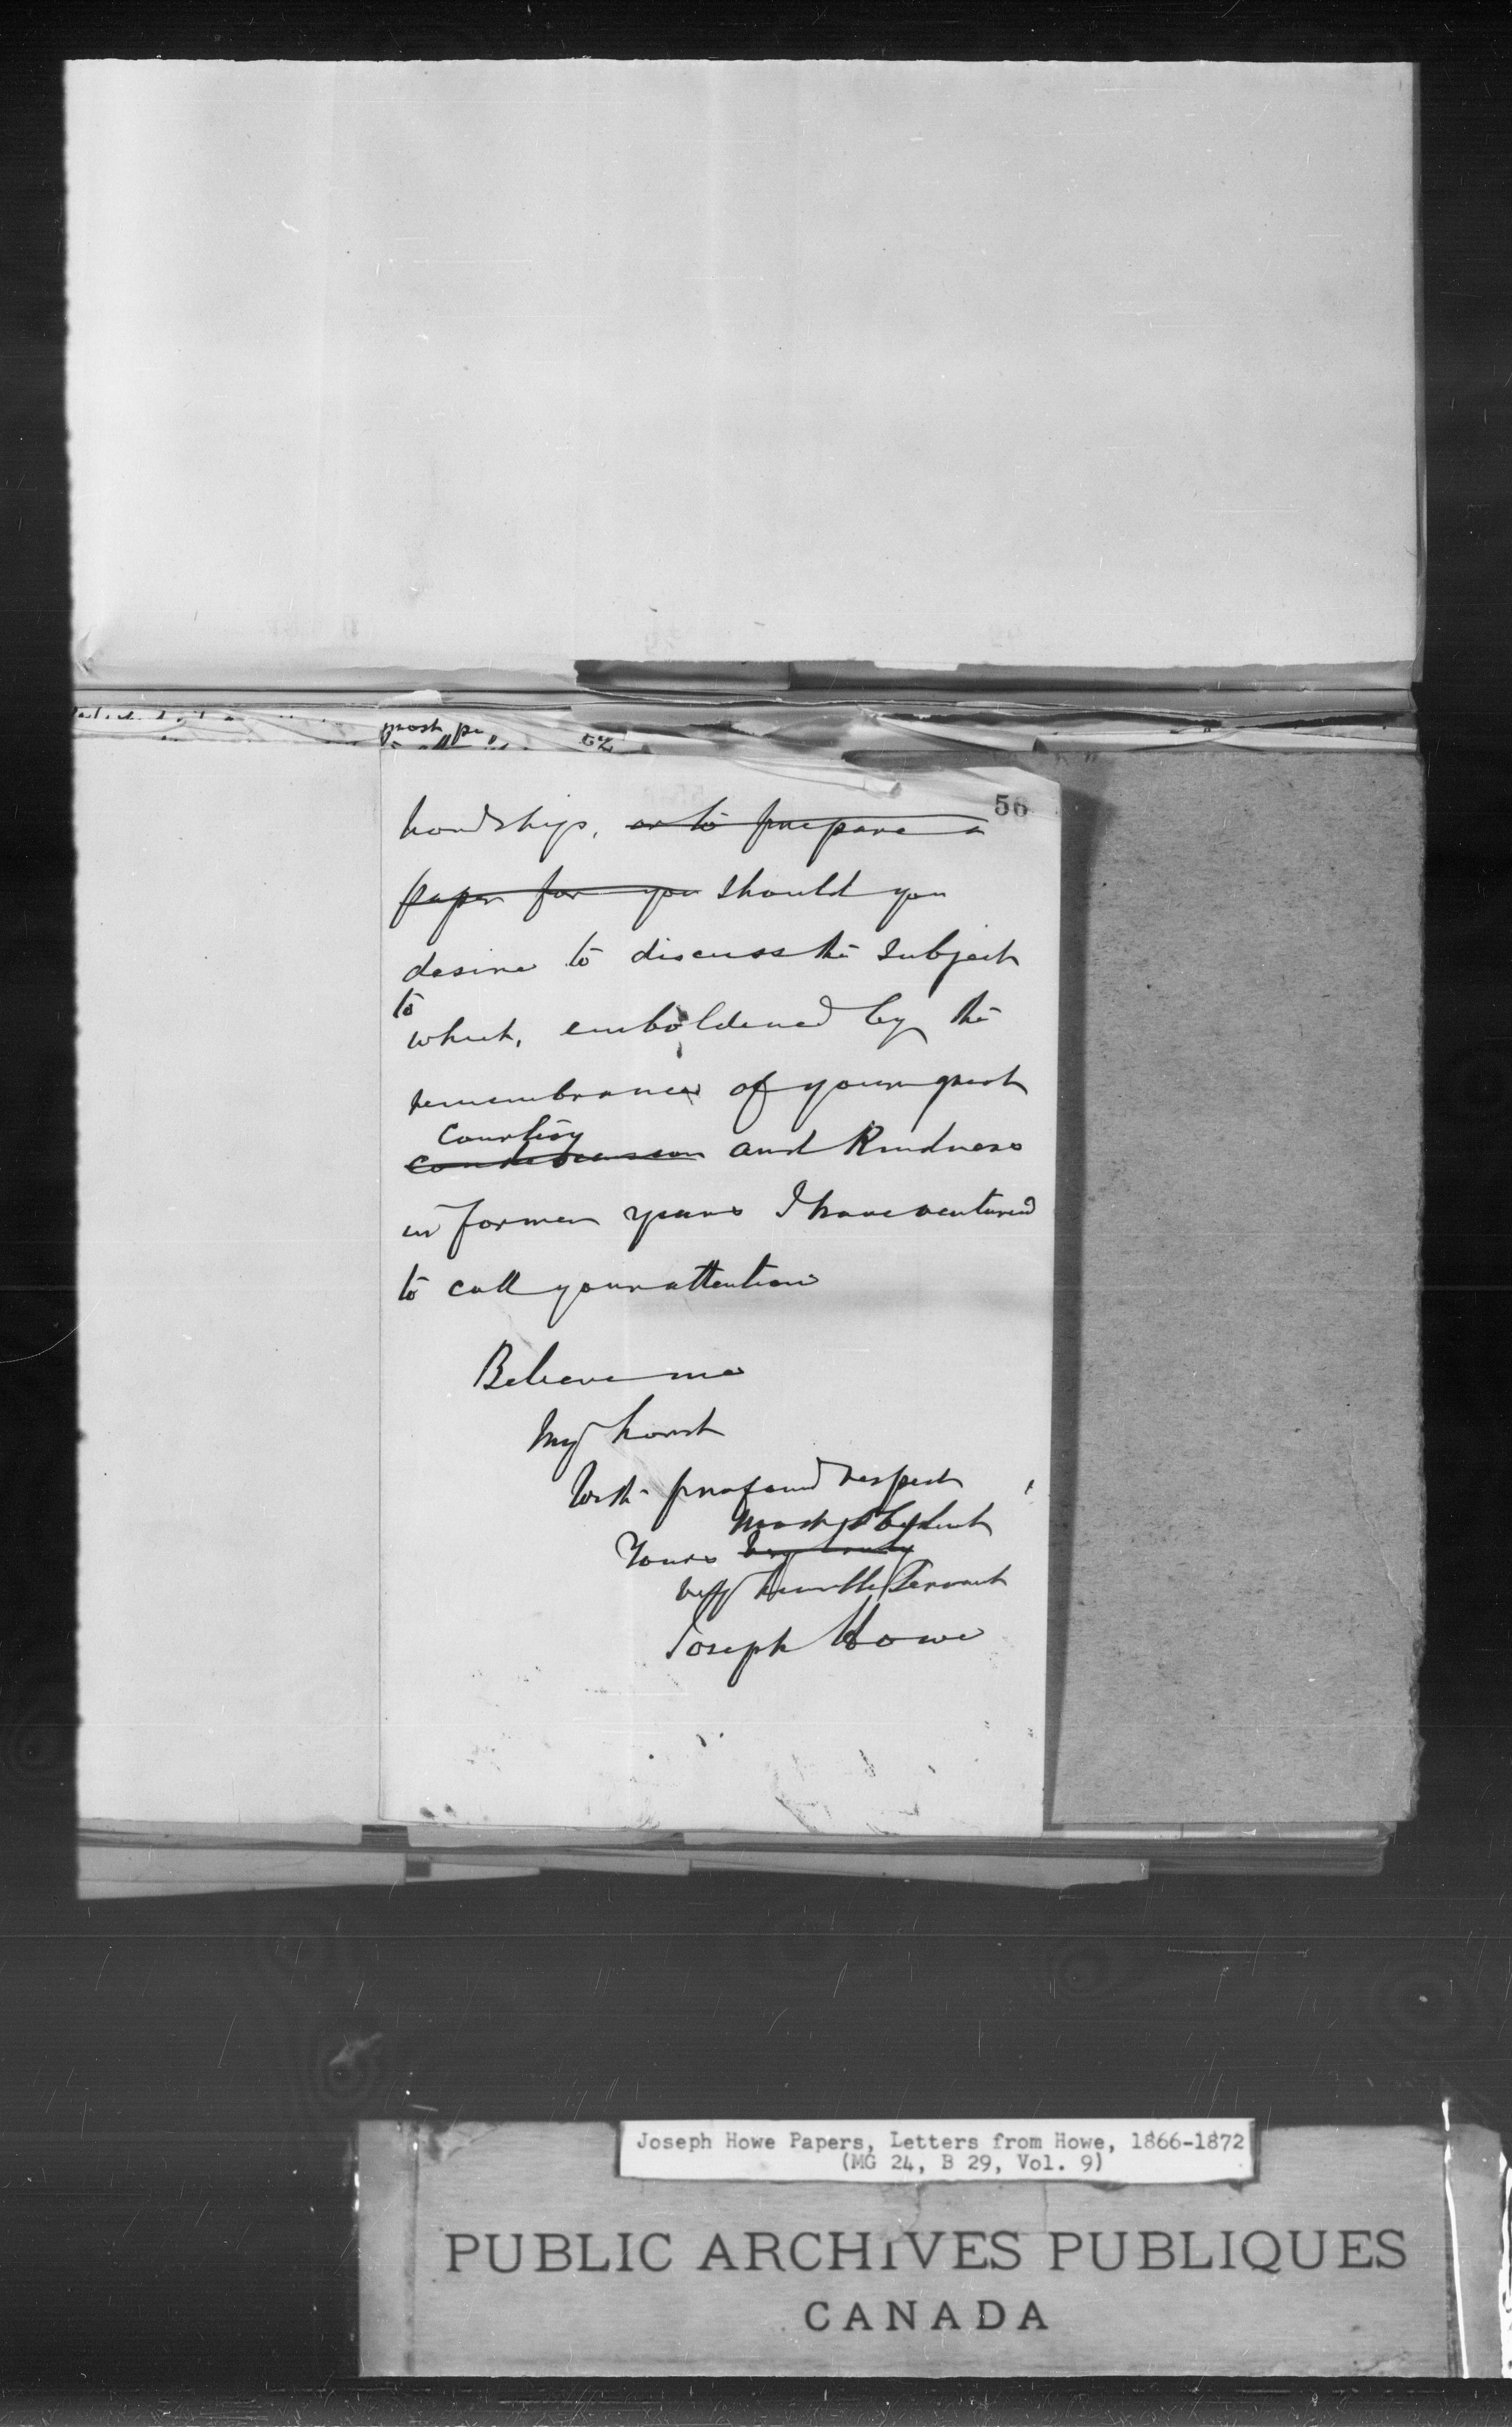 most pe
56
Lordship, or to prepare a
paper for you should you
desire to discuss the subject
to
which, emboldened by the
remembrance of your great
Courtesy
condescension and Kindness
in former years I have ventured
to call your attention
Believe me
My Lord
With profound respect
Most Obedient
Yours very truly
very humble Servant
Joseph Howe
Joseph Howe Papers, Letters from Howe, 1866-1872
(MG 24, B 29, Vol. 9)
PUBLIC ARCHIVES PUBLIQUES
CANADA